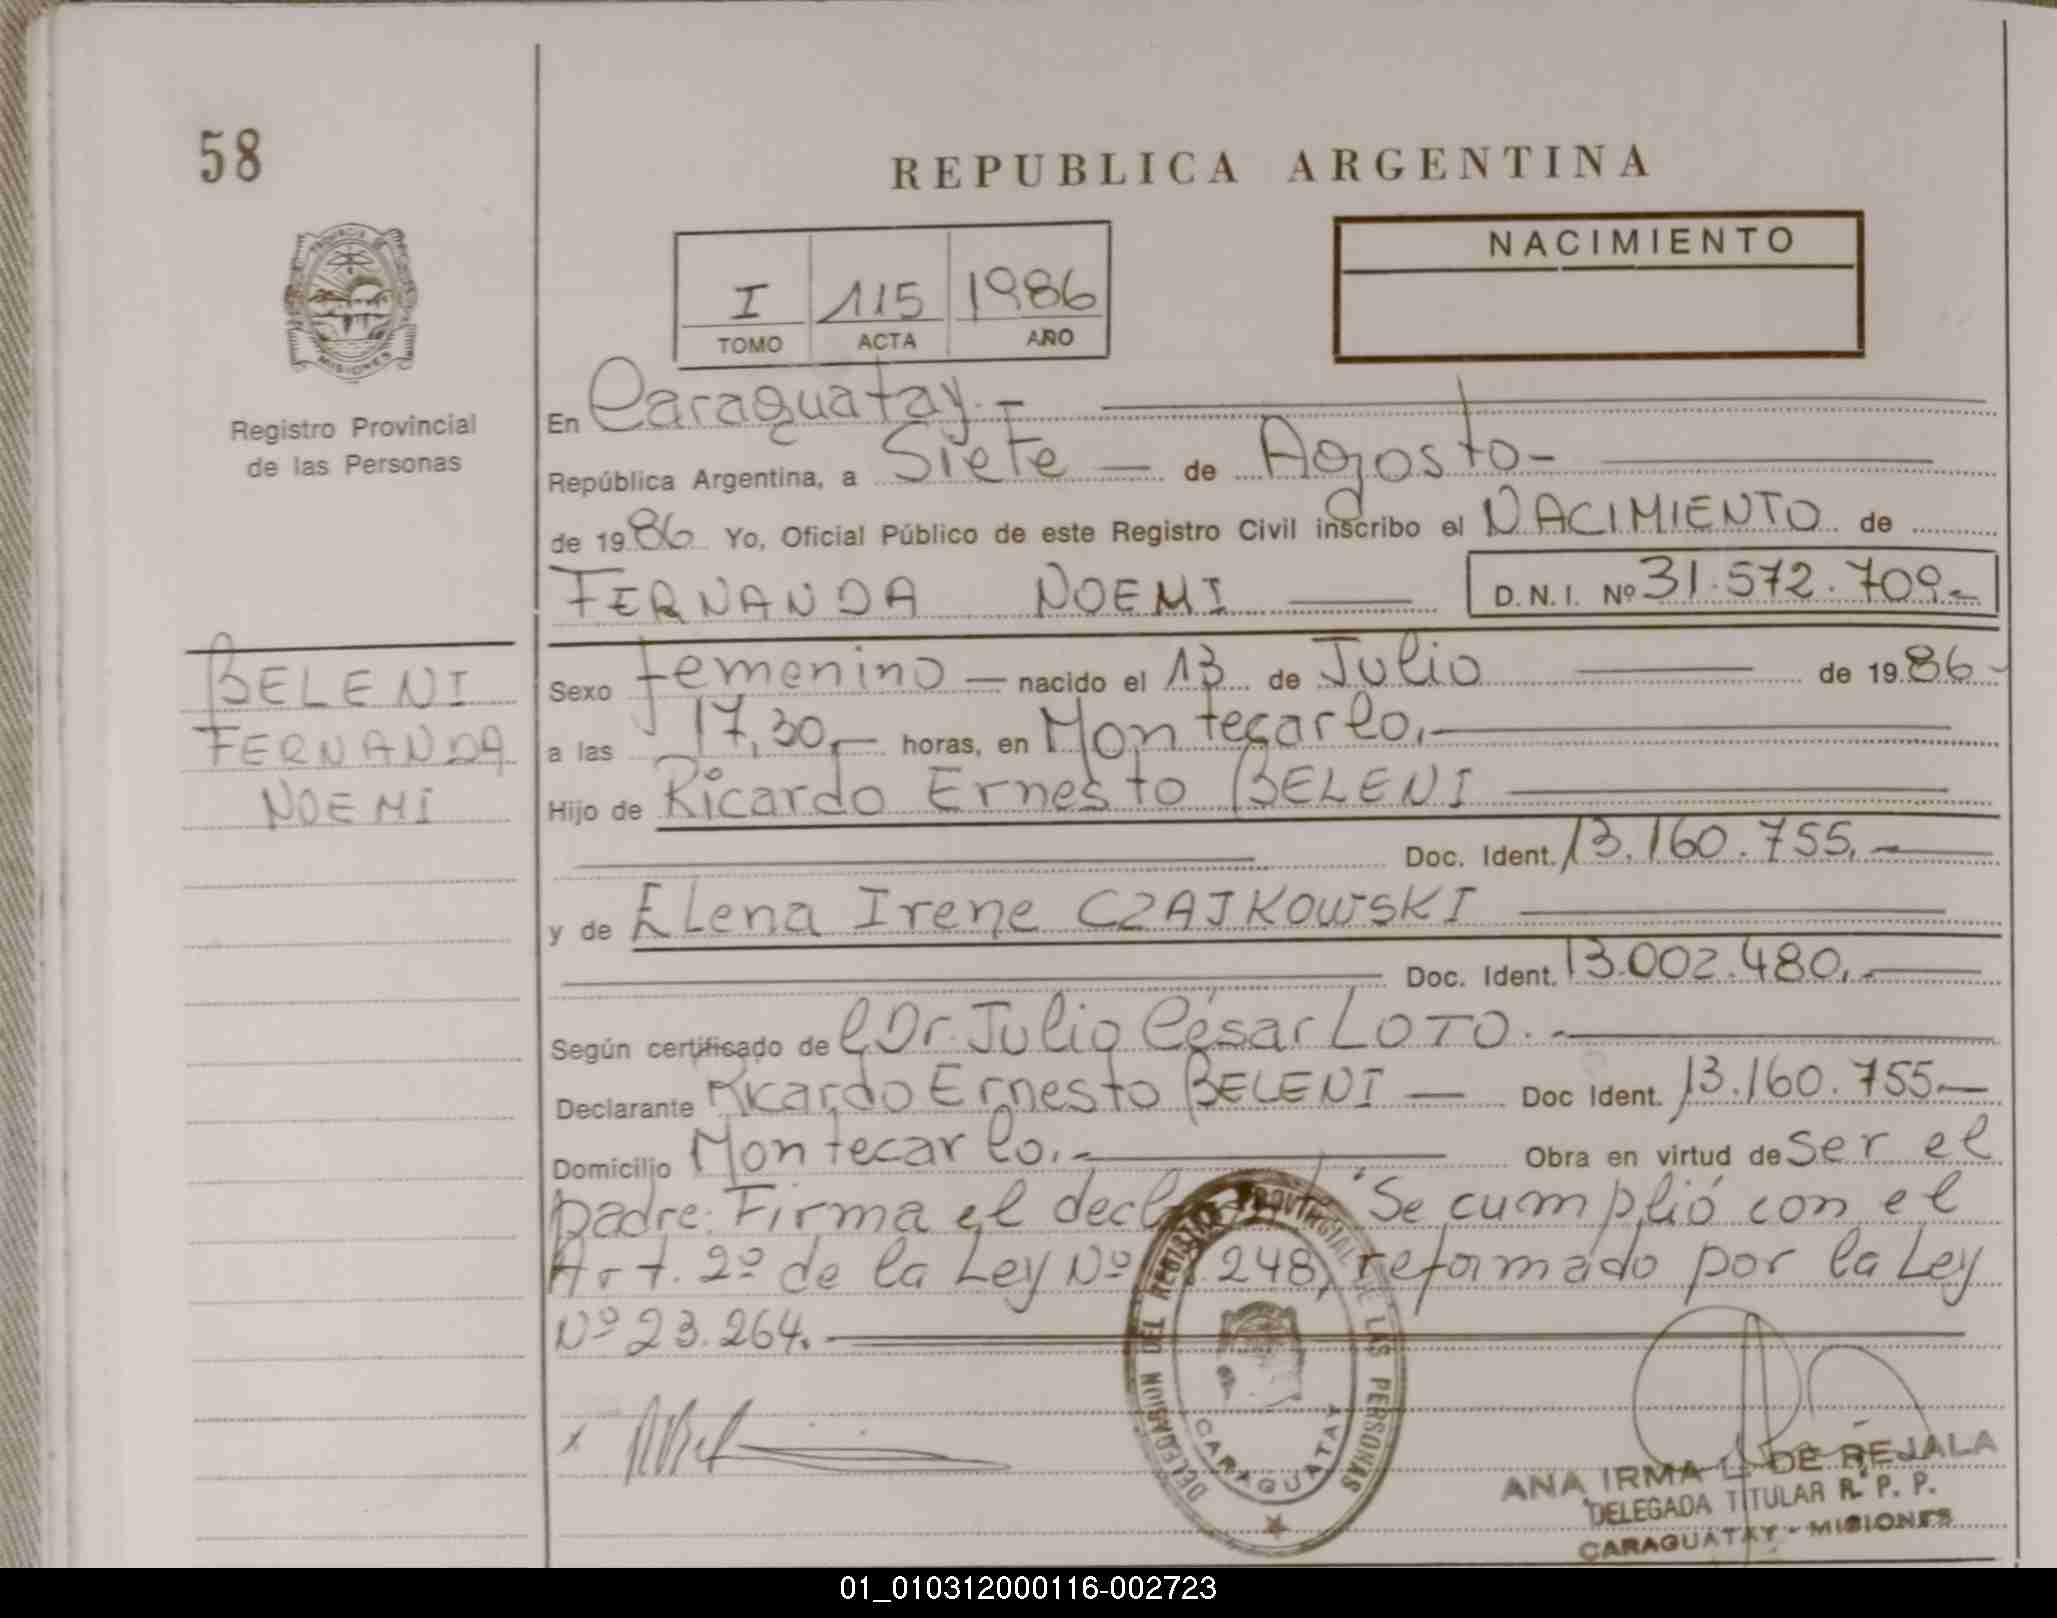 58
REPUBLICA ARGENTINA
PROVINCIA DE
MISIONES
Registro Provincial
de las Personas
NACIMIENTO
I 115 1986
TOMO ACTA AÑO
En Caraguatay.-
República Argentina, a Siete — de Agosto-
de 1986 Yo, Oficial Público de este Registro Civil inscribo el NACIMIENTO de
FERNANDA NOEMI — D.N.I. Nº 31.572.709.-
BELENI
FERNANDA
NOEMI
Sexo femenino — nacido el 13 de Julio — de 1986-
a las 17,30,— horas, en Montecarlo,—
Hijo de Ricardo Ernesto BELENI —
Doc. Ident. 13.160.755.-
y de Elena Irene CZAJKOWSKI —
Doc. Ident. 13.002.480,.-
Según certificado de l Dr. Julio César LOTO.-
Declarante Ricardo Ernesto BELENI — Doc Ident. 13.160.755.-
Domicilio Montecarlo.- Obra en virtud de ser el
padre. Firma el "Se cumplió con el
Art. 2º de la Ley Nº 248, reformado por la Ley
Nº 23.264.
DELEGACION DEL REGISTRO PROVINCIAL DE LAS PERSONAS
CARAGUATAY
ANA IRMA L. DE REJALA
DELEGADA TITULAR R. P. P.
CARAGUATAY - MISIONES
01_010312000116-002723